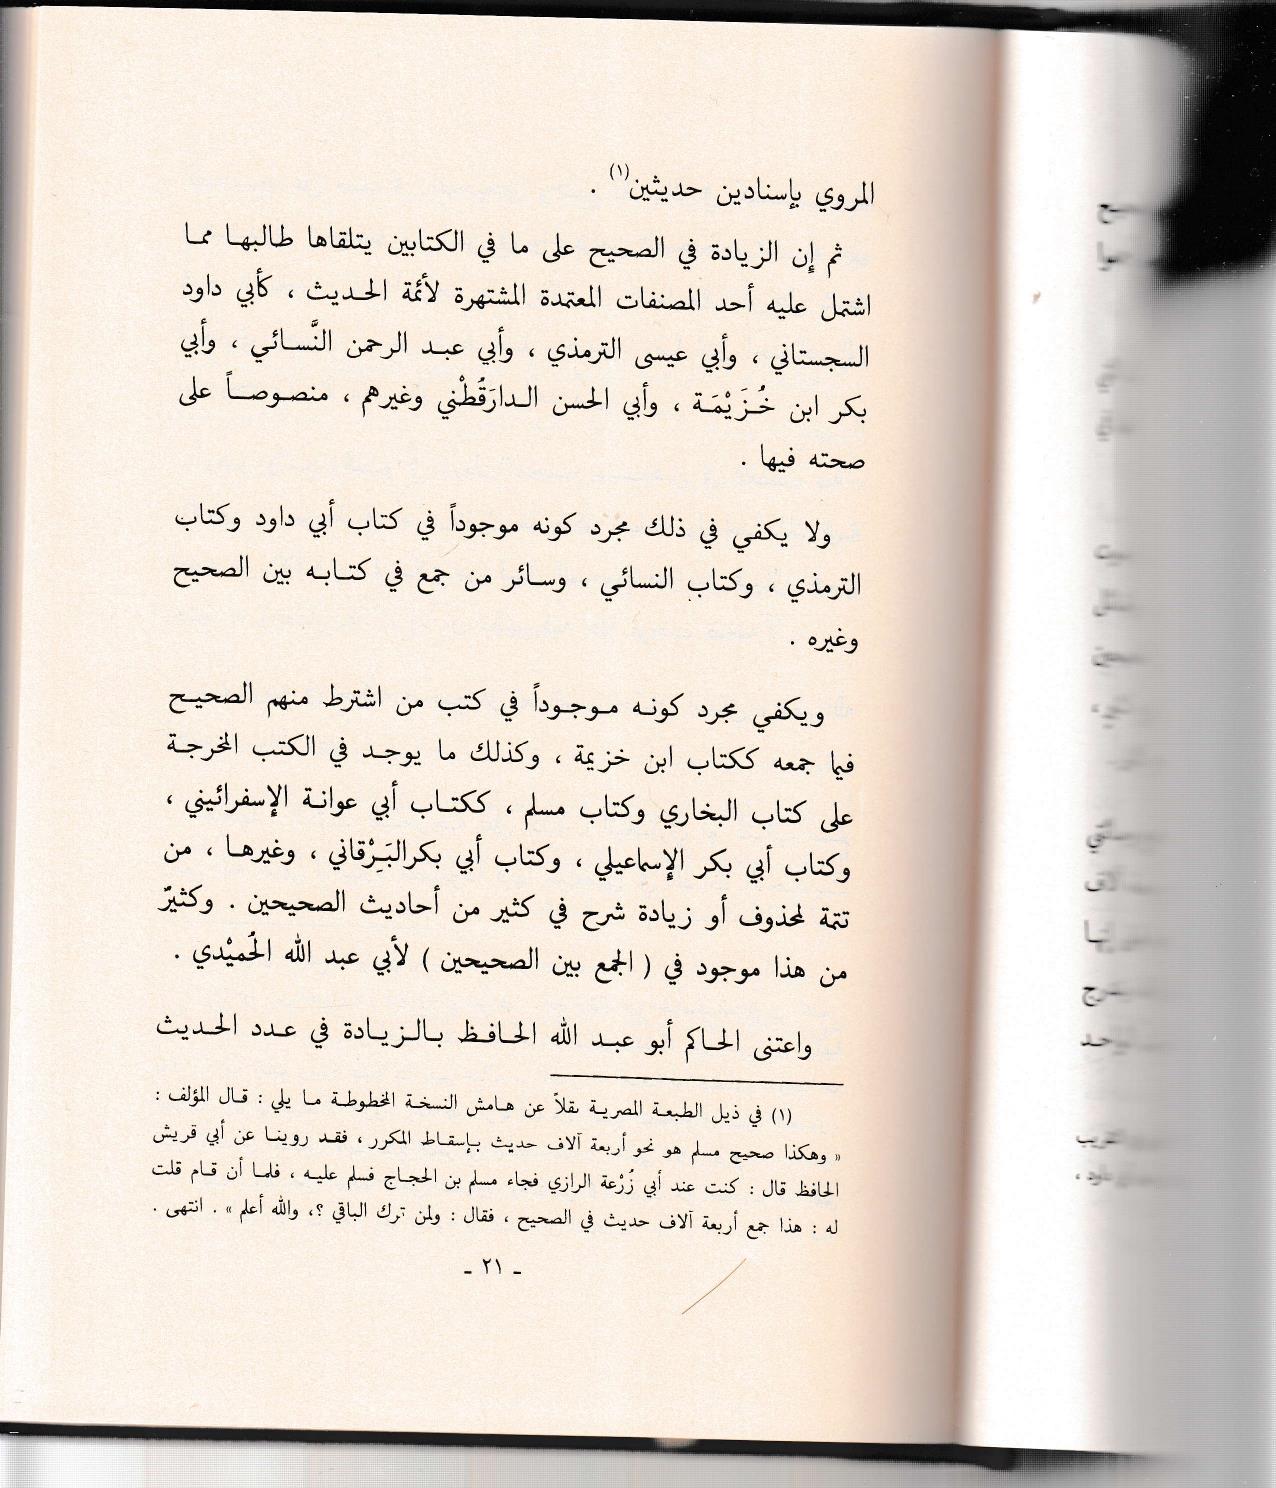 المروي بإسنادين حديثين(١) .
ثم إن الزيادة في الصحيح على ما في الكتابين يتلقاها طالبها مما
اشتمل عليه أحد المصنفات المعتمدة المشتهرة لأئمة الحديث ، كأبي داود
السجستاني ، وأبي عيسى الترمذي ، وأبي عبد الرحمن النَّسائي ، وأبي
بكر ابن خُزَيْمَة ، وأبي الحسن الدارَقُطْني وغيرهم ، منصوصاً على
صحته فيها .
ولا يكفي في ذلك مجرد كونه موجوداً في كتاب أبي داود وكتاب
الترمذي ، وكتاب النسائي ، وسائر من جمع في كتابه بين الصحيح
وغيره .
ويكفي مجرد كونه موجوداً في كتب من اشترط منهم الصحيح
فيما جمعه ككتاب ابن خزيمة ، وكذلك ما يوجد في الكتب المخرجة
على كتاب البخاري وكتاب مسلم ، ككتاب أبي عوانة الإسفرائيني ،
وكتاب أبي بكر الإسماعيلي ، وكتاب أبي بكرالبَرِْقاني ، وغيرها ، من
تتمة لمحذوف أو زيادة شرح في كثير من أحاديث الصحيحين . وكثيرٌ
من هذا موجود في ( الجمع بين الصحيحين ) لأبي عبد الله الحُميْدي .
واعتنى الحاكم أبو عبد الله الحافظ بالزيادة في عدد الحديث
(١) في ذيل الطبعة المصرية نقلاً عن هامش النسخة المخطوطة ما يلي : قال المؤلف :
« وهكذا صحيح مسلم هو نحو أربعة آلاف حديث بإسقاط المكرر ، فقد روينا عن أبي قريش
الحافظ قال : كنت عند أبي زُرْعة الرازي فجاء مسلم بن الحجاج فسلم عليه ، فلما أن قام قلت
له : هذا جمع أربعة آلاف حديث في الصحيح ، فقال : ولمن ترك الباقي ؟، والله أعلم » . انتهى .
ـ ٢١ ـ